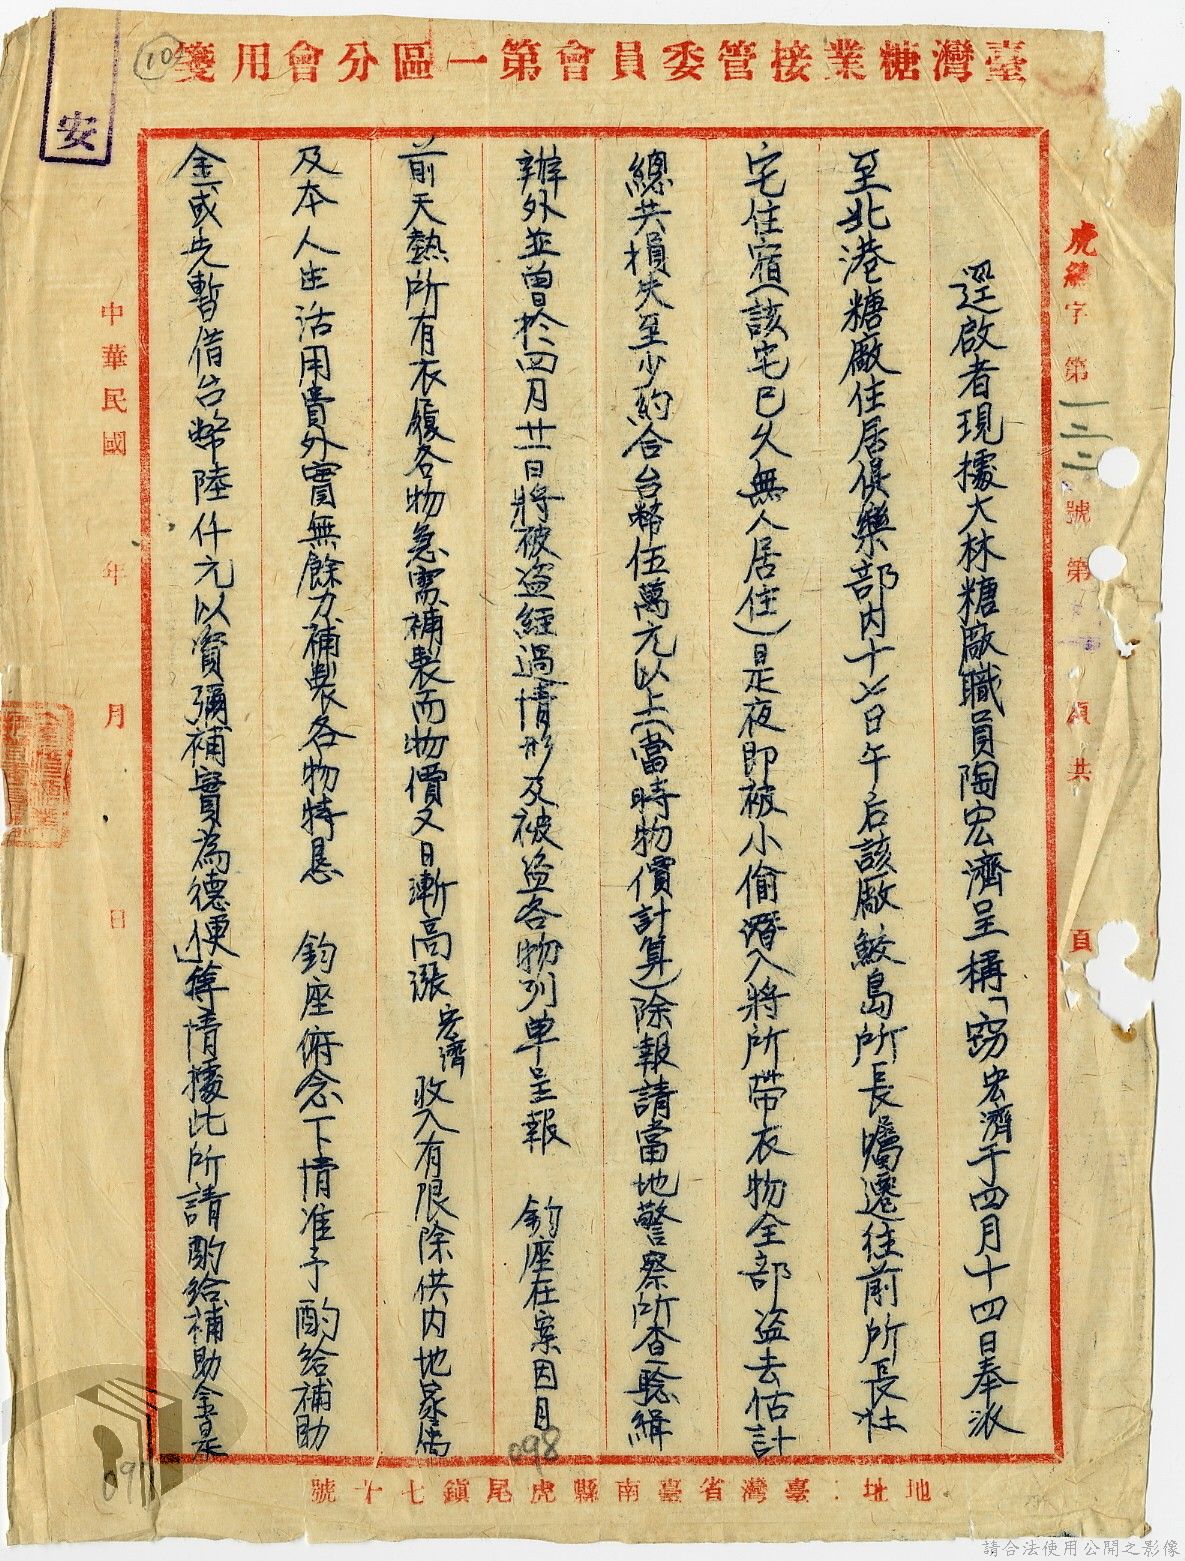 臺灣糖業接管委員會第一區分會用箋
虎總字第一三二號第 頁共 頁
逕啟者現據大林糖廠職員陶宏濟呈稱「竊宏濟于四月十四日奉派
至北港糖廠住居俱樂部内十七日午后該廠鮫島所長囑遷往前所長社
宅住宿(該宅已久無人居住)是夜即被小偷潛入將所帶衣物全部盗去估計
總共損失至少約合台幣伍萬元以上(當時物價計算)除報請當地警察所查驗緝
辦外並曾於四月廿一日將被盗經過情形及被盗各物列單呈報 鈞座在案因月
前天熱所有衣履各物急需補製而物價又日漸高漲宏濟收入有限除供内地家屬
及本人生活用費外實無餘力補製各物特懇 鈞座俯念下情准予酌給補助
金或先暫借台幣陸仟元以資彌補實為德便」等情據此所請酌給補助金是
中華民國 年 月 日
地址：臺灣省臺南縣虎尾鎮七十號
安
10
098
097
請合法使用公開之影像